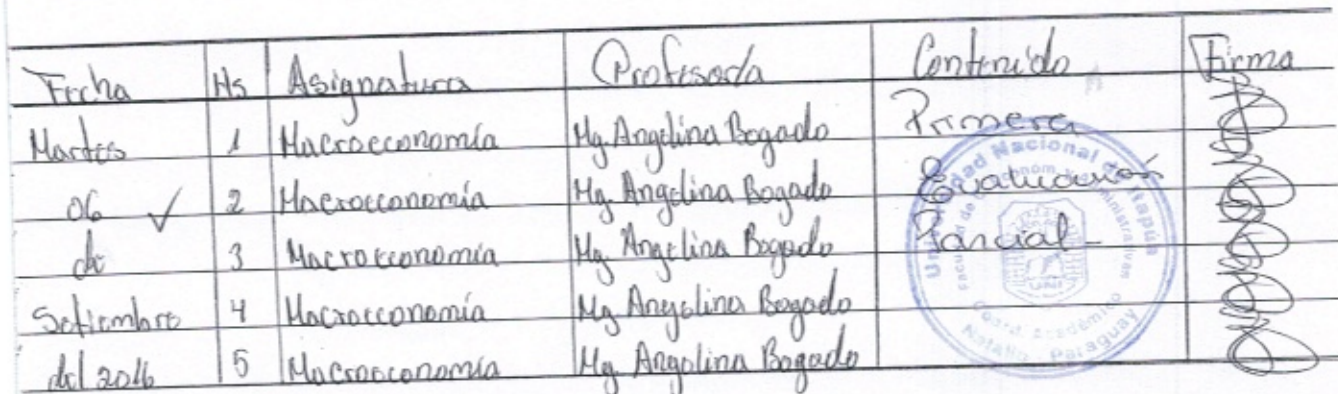 Fecha Hs Asignatura Profesor/a Contenido Firma
Martes 1 Macroeconomía Mg. Angelina Bogado Primera
06 ✓ 2 Macroeconomía Mg. Angelina Bogado Evaluación
de 3 Macroeconomía Mg. Angelina Bogado Parcial-
Setiembre 4 Macroeconomía Mg Angelina Bogado
del 2016 5 Macroeconomía Mg. Angelina Bogado
Universidad Nacional de Itapúa
Facultad de Administrativas
UNI
Coord. Académico
Natalio - Paraguay